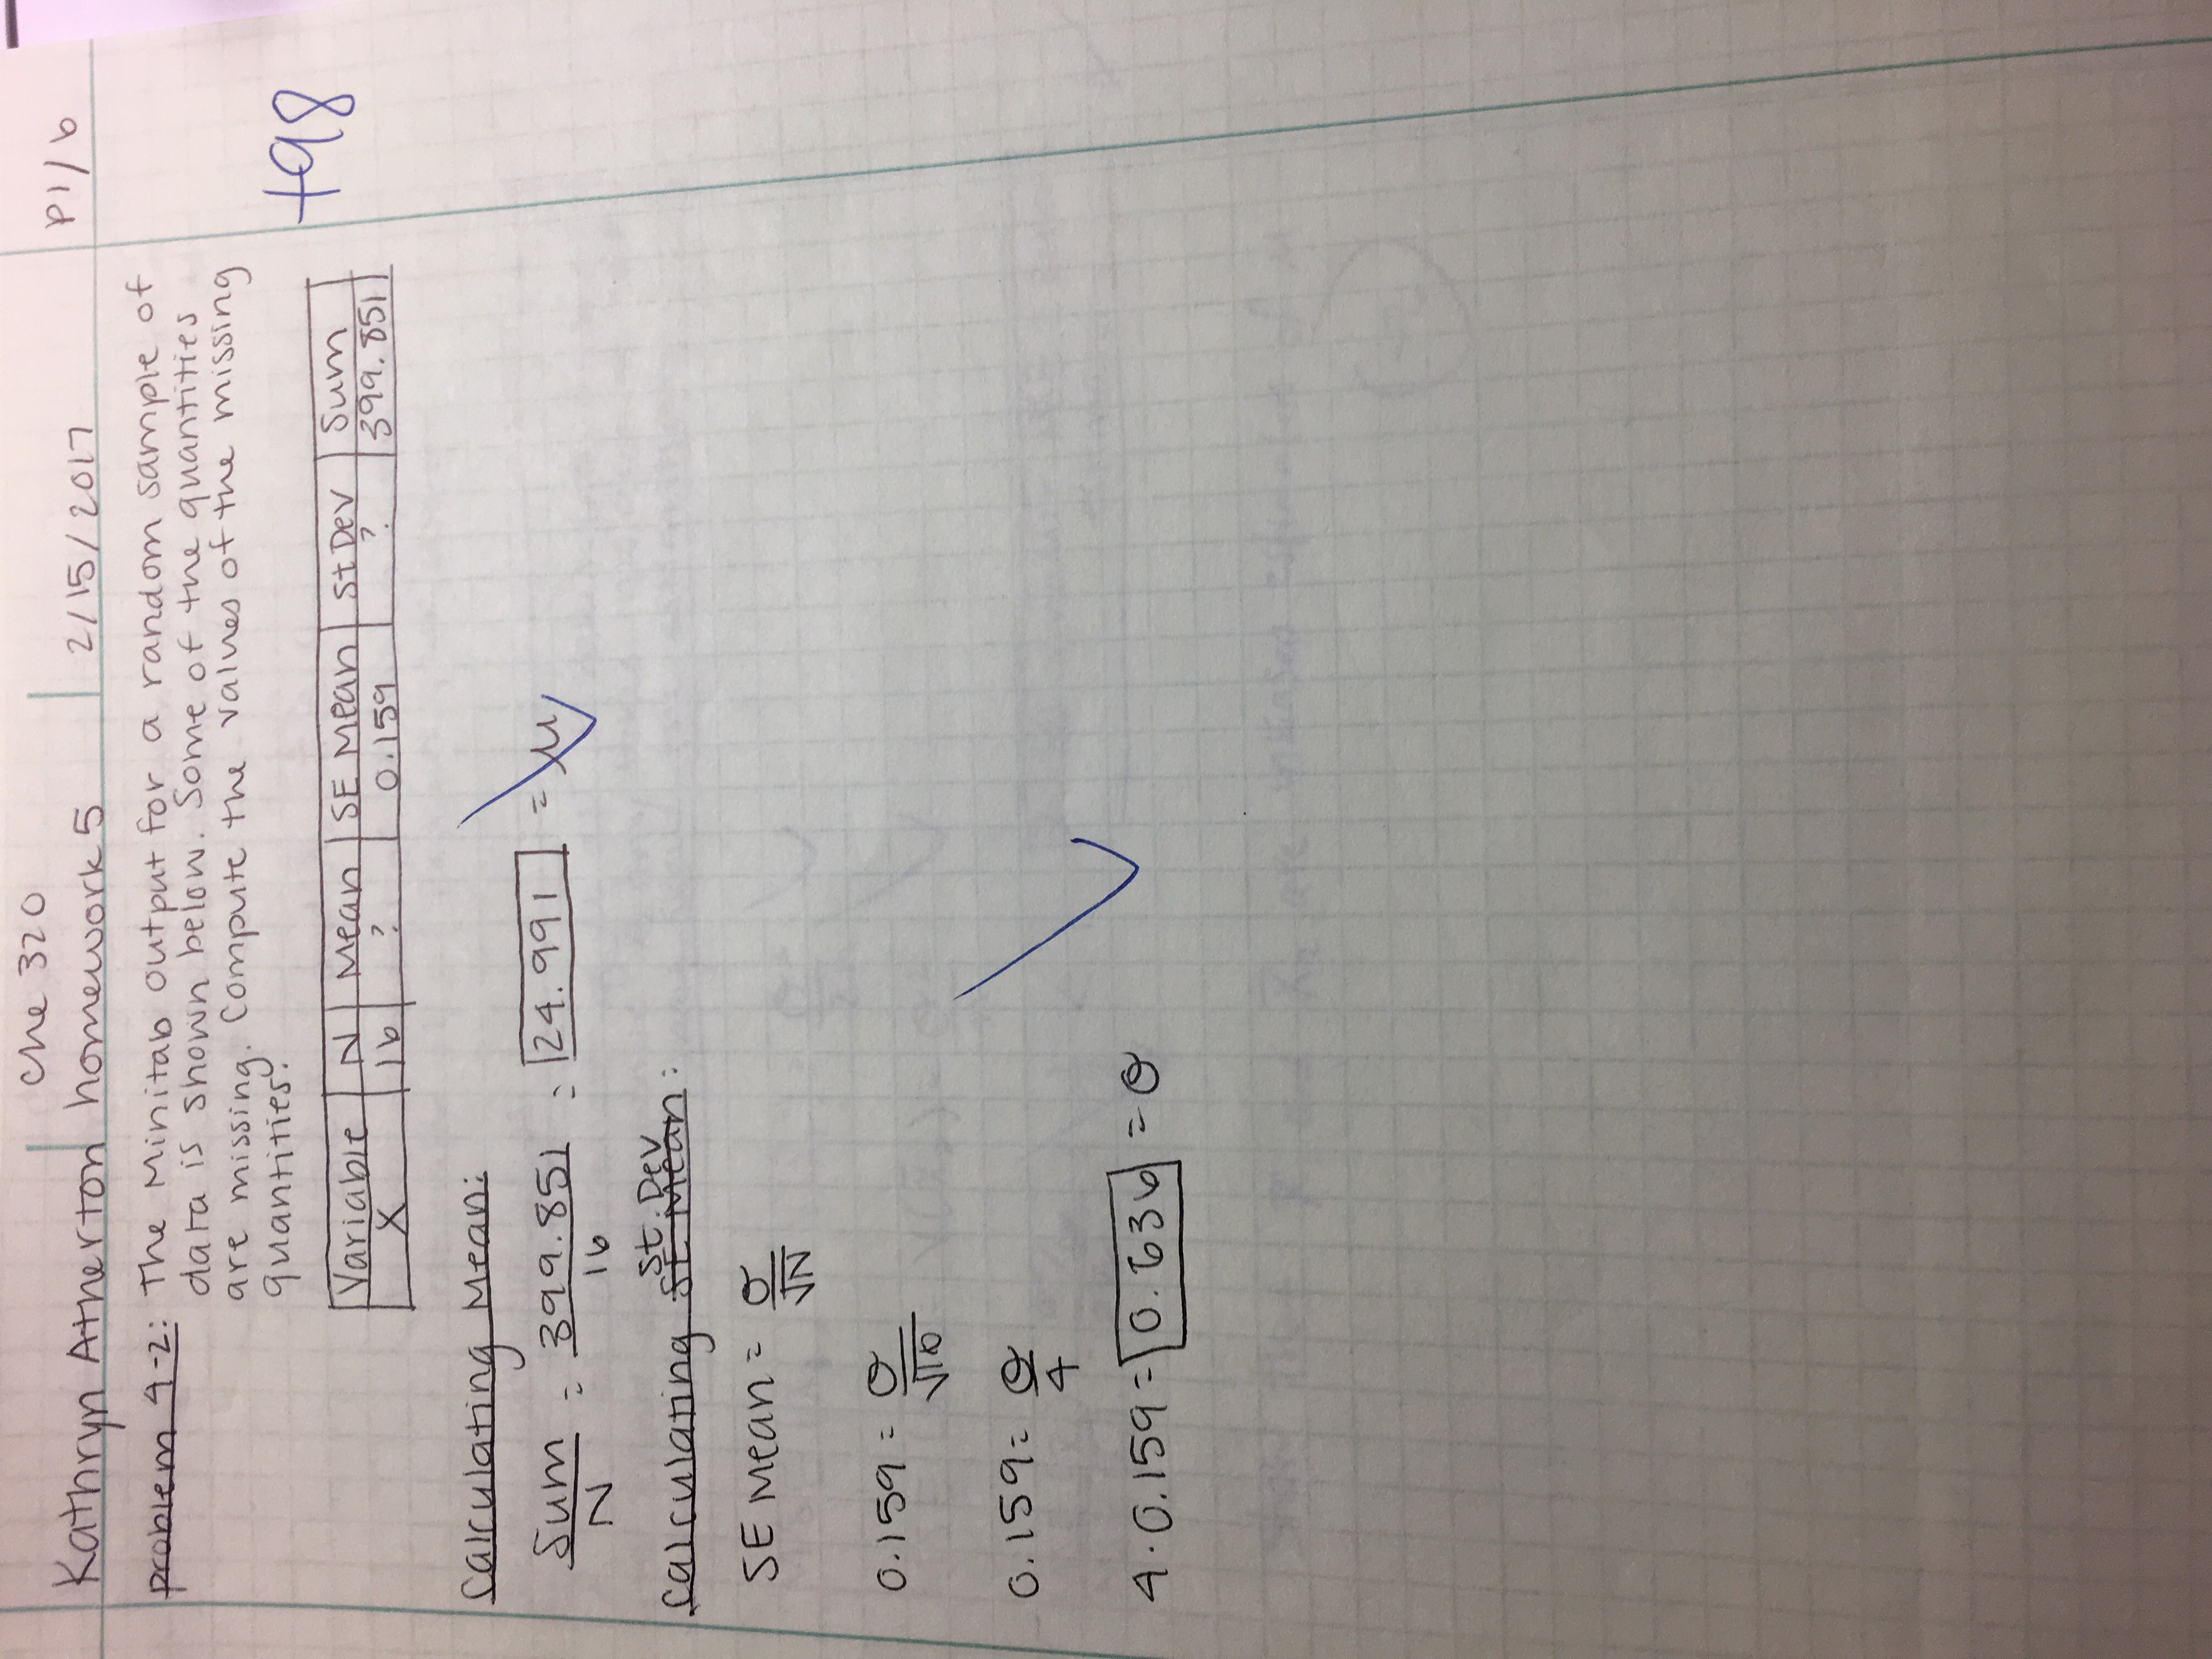 Che 320
Kathryn Atherton homework 5 2/15/2017 p1/6
problem 4-2: The Minitab output for a random sample of
data is shown below. Some of the quantities
are missing. Compute the values of the missing
quantities.
+98
Variable N Mean SE Mean StDev Sum
X 16 ? 0.159 ? 399.851
Calculating Mean:
Sum/N = 399.851/16 = 24.991 = μ
Calculating SE Mean St. Dev:
SE Mean = σ/√N
0.159 = σ/√16
0.159 = σ/4
4·0.159 = 0.636 = σ